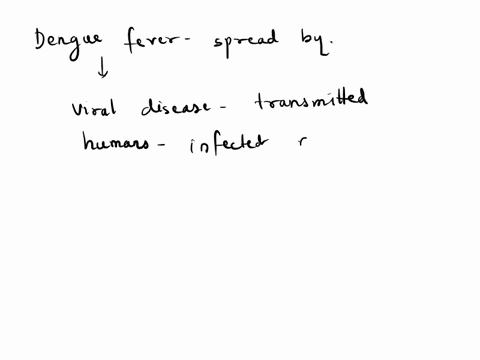 Dengue fever - spread by.
↓
viral disease - transmitted
humans - infected